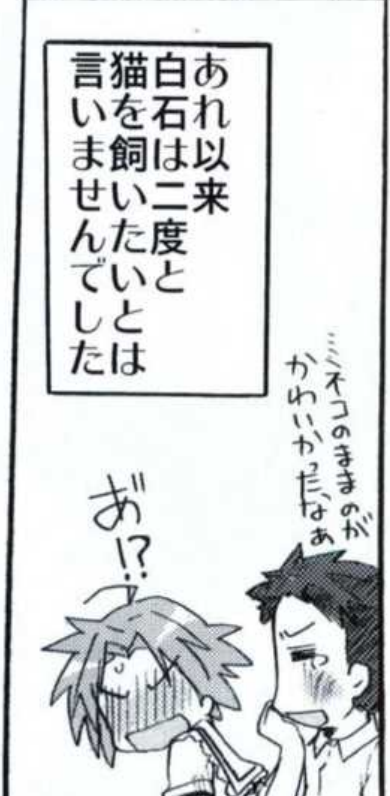 あれ以来
白石は二度と
猫を飼いたいとは
言いませんでした
…ミネコのままのが
かわいかったなぁ
あ゛!?